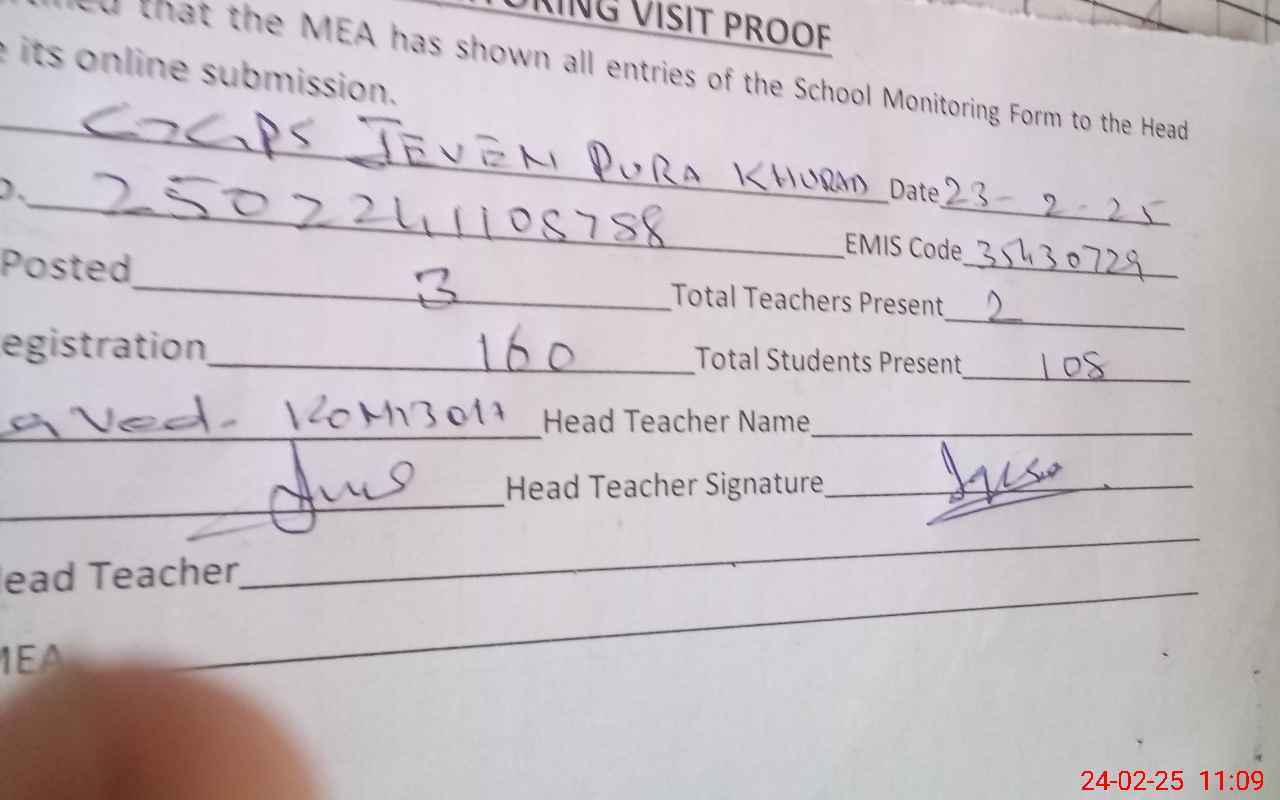 ORING VISIT PROOF
that the MEA has shown all entries of the School Monitoring Form to the Head
its online submission.
GGPS JEVEN PURA KHURAD Date 23-2-25
2502241108758 EMIS Code 35430729
Posted 3 Total Teachers Present 2
egistration 160 Total Students Present 108
aved. Head Teacher Name
Head Teacher Signature
ead Teacher
MEA
24-02-25 11:09